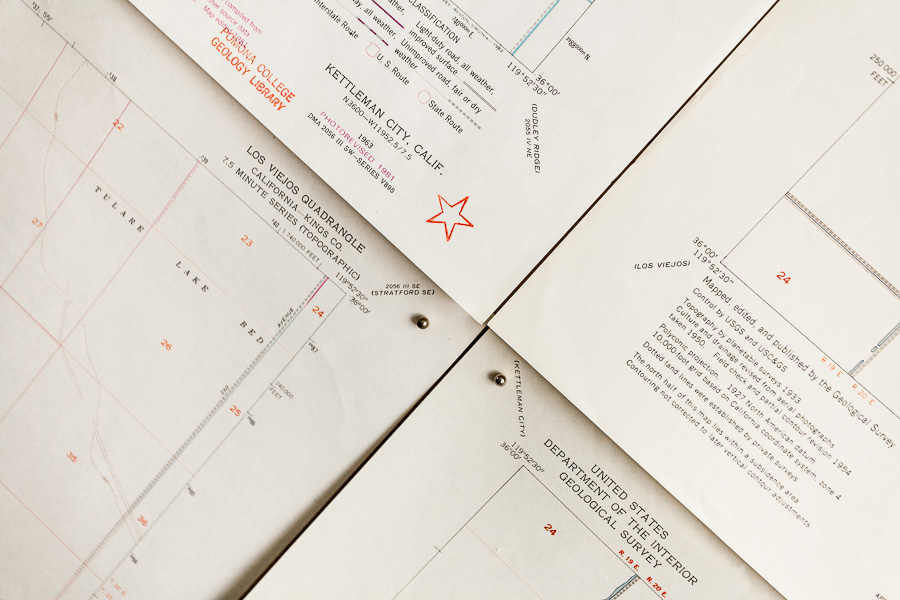 compiled from
other source data
Map edited
POMONA COLLEGE
GEOLOGY LIBRARY
Interstate Route
U. S. Route
State Route
CLASSIFICATION
Light-duty road, all weather,
improved surface
Unimproved road, fair or dry
weather
KETTLEMAN CITY, CALIF.
N3600—W11952.5/7.5
1963
PHOTOREVISED 1981
DMA 2056 III SW—SERIES V895
36°00'
119°52'30"
(DUDLEY RIDGE)
2055 IV NE
LOS VIEJOS QUADRANGLE
CALIFORNIA—KINGS CO.
7.5 MINUTE SERIES (TOPOGRAPHIC)
1 740 000 FEET
119°52'30"
36°00'
2056 III SE
(STRATFORD SE)
TULARE
LAKE
BED
AVENUE
22
27
23
26
24
25
35
36
240 000
FEET
250 000
FEET
36°00'
119°52'30"
(LOS VIEJOS)
24
R. 19 E.
R. 20 E.
Mapped, edited, and published by the Geological Survey
Control by USGS and USC&GS
Topography by planetable surveys 1933
Culture and drainage revised from aerial photographs
taken 1950. Field check and partial contour revision 1954
Polyconic projection. 1927 North American datum
10,000-foot grid based on California coordinate system, zone 4
Dotted land lines were established by private surveys
The north half of this map lies within a subsidence area
Contouring not corrected to later vertical contour adjustments
(KETTLEMAN CITY)
119°52'30"
36°00'
UNITED STATES
DEPARTMENT OF THE INTERIOR
GEOLOGICAL SURVEY
24
R. 19 E.
R. 20 E.